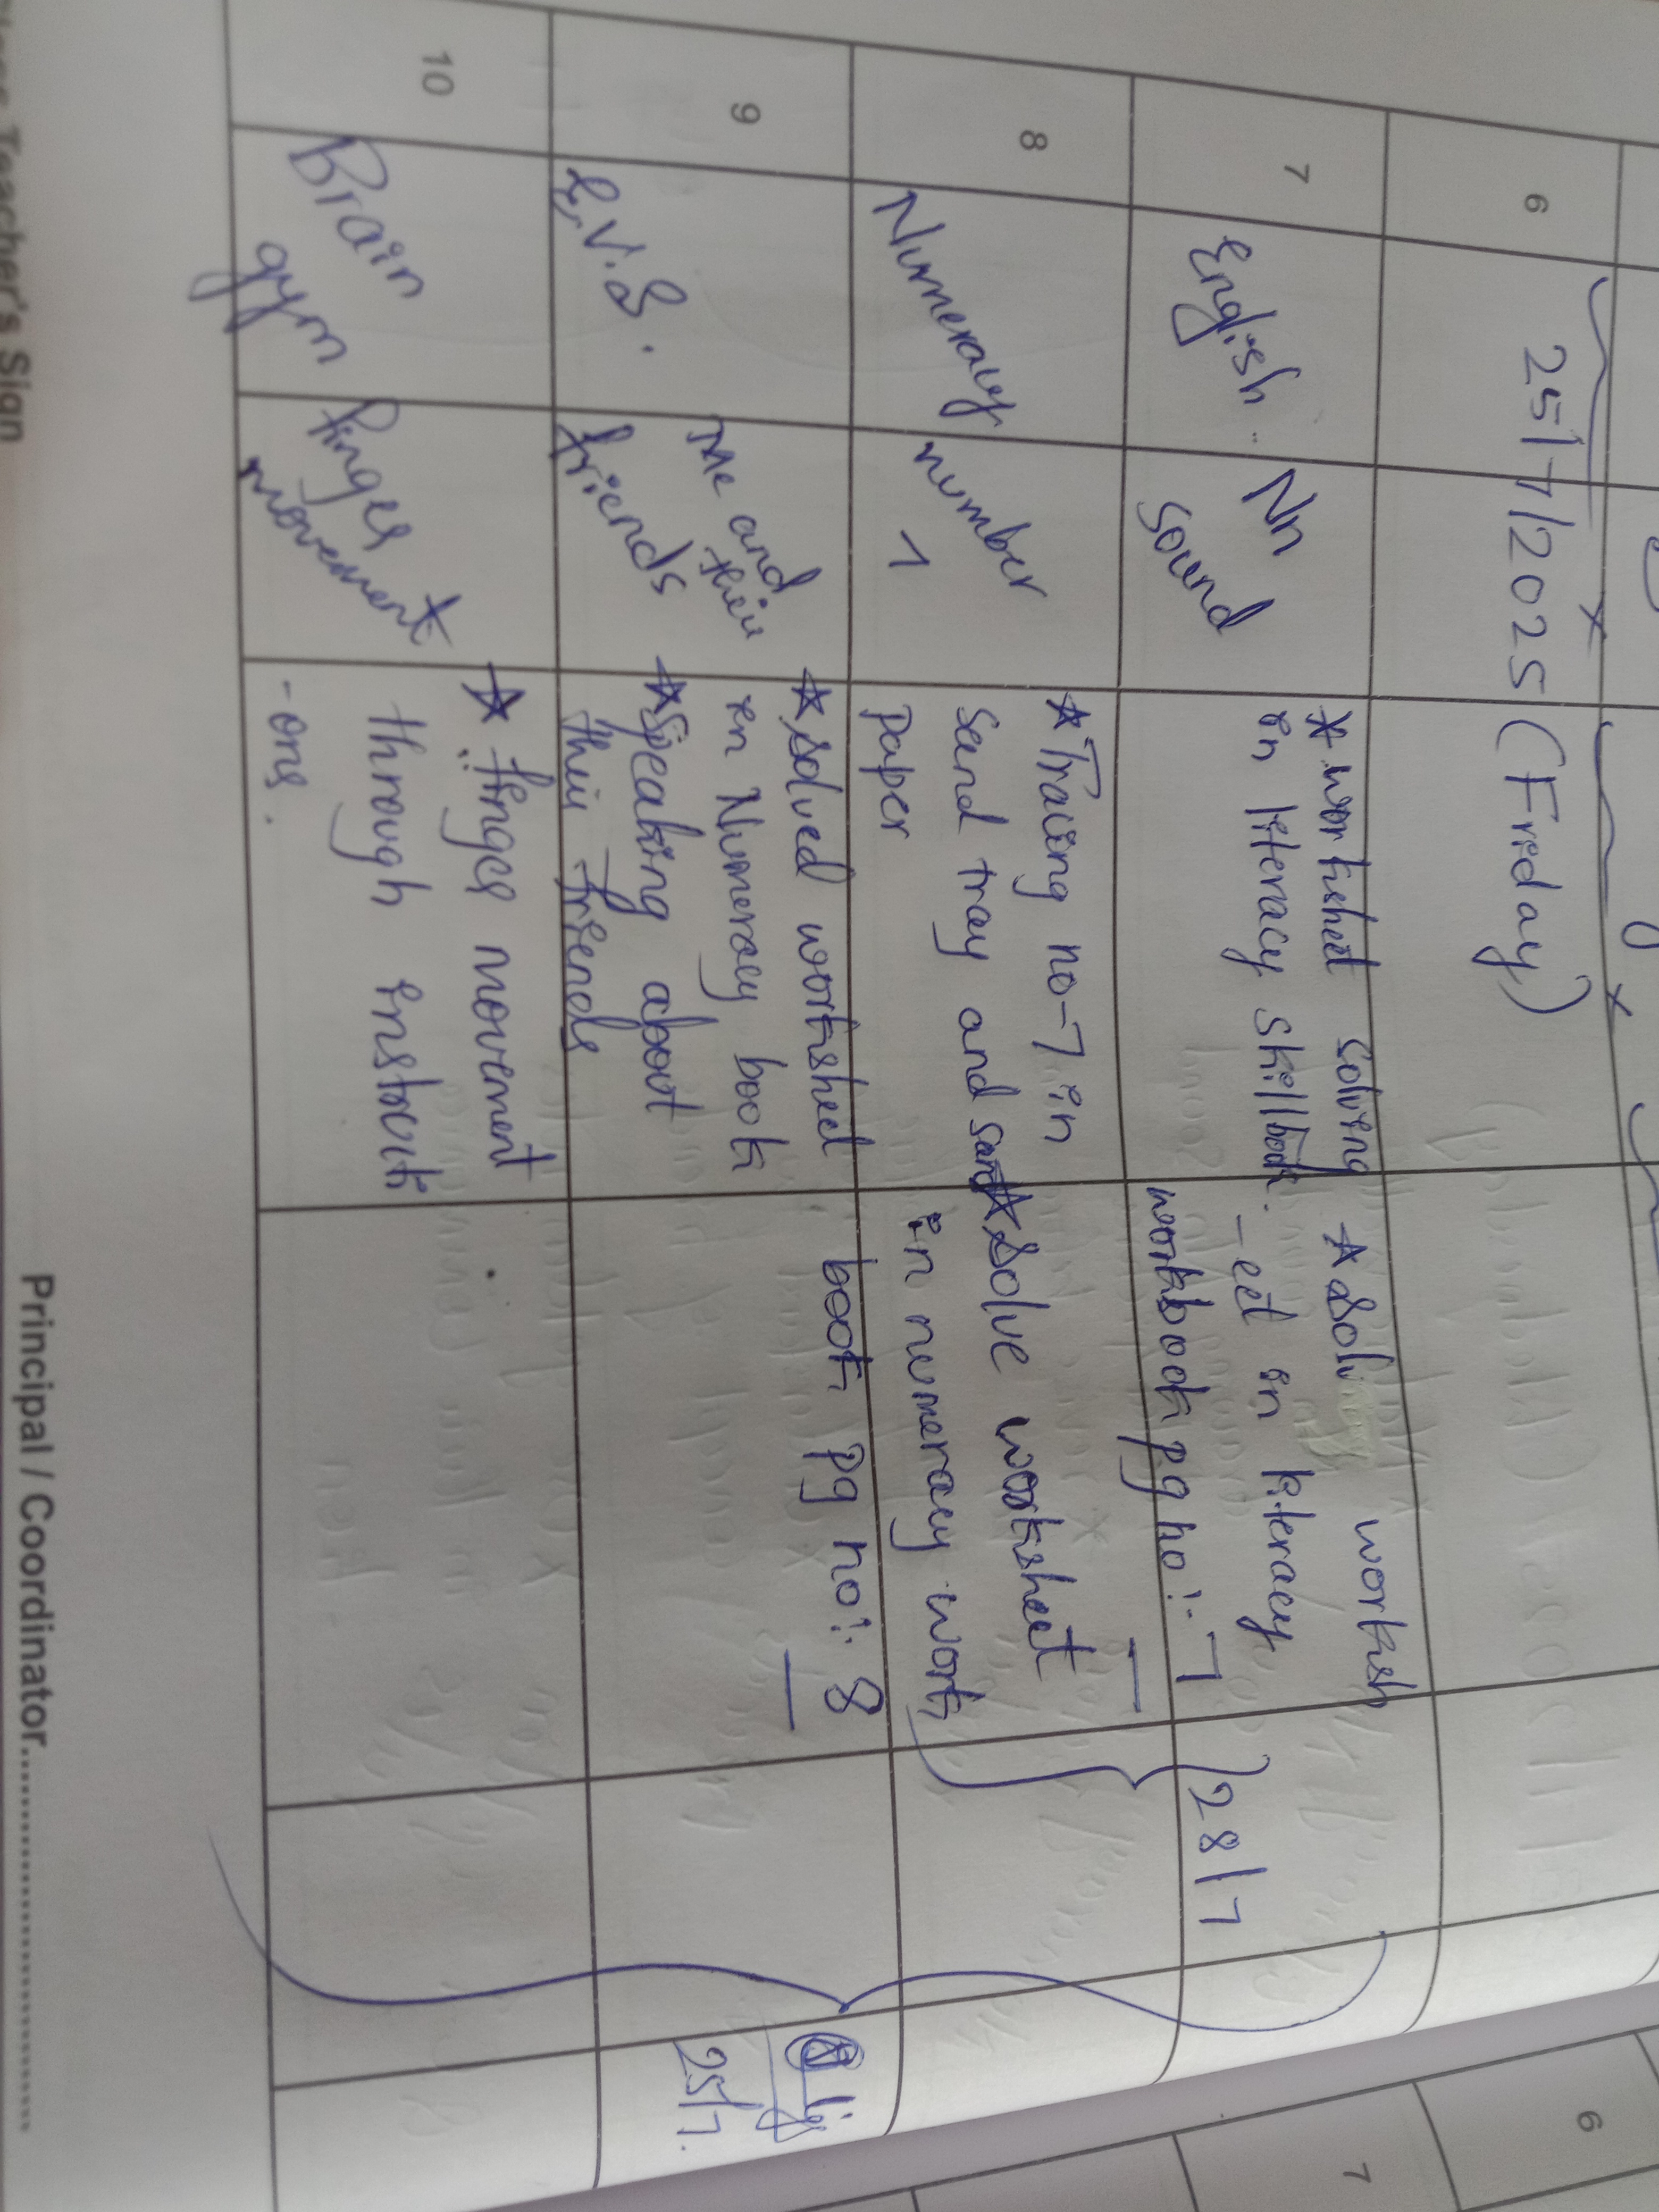 6
25/7/2025 (Friday)
7
English
Nn
sound
* worksheet solving
in literacy skillbook.
* Solv worksh
-eet in literacy
workbook pg no:- 7
28/7
8
Numeracy
number
7
* Tracing no-7 in
Sand tray and sand
paper
* Solve worksheet
in numeracy work
book pg no:- 8
9
E.V.S.
Me and
their
friends
* Solved worksheet
in Numeracy book
* Speaking about
their friends
25/7.
10
Brain
gym
finger
movement
* finger movement
through instructi
-ons.
Teacher's Sign
Principal / Coordinator
6
7